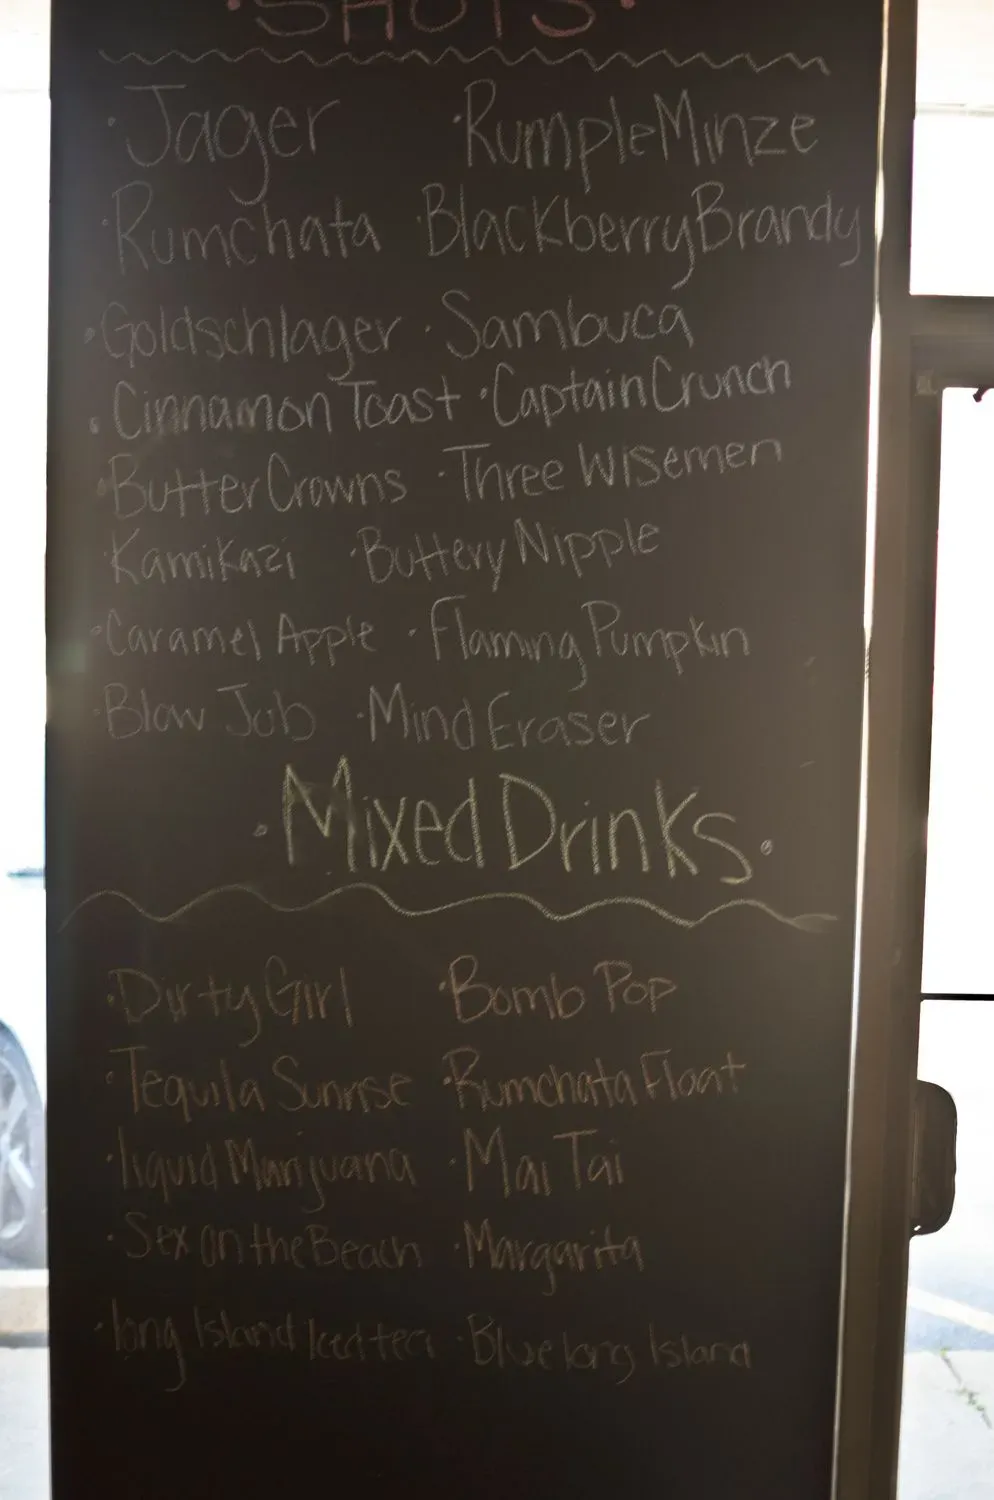 ·SHOTS·
·Jager ·RumpleMinze
·Rumchata ·BlackberryBrandy
·Goldschlager ·Sambuca
·Cinnamon Toast ·CaptainCrunch
·ButterCrowns ·Three Wisemen
·Kamikazi ·Buttery Nipple
·Caramel Apple ·Flaming Pumpkin
·Blow Job ·Mind Eraser
·Mixed Drinks·
·Dirty Girl ·Bomb Pop
·Tequila Sunrise ·Rumchata Float
·liquid Marijuana ·Mai Tai
·Sex on the Beach ·Margarita
·long Island Iced tea ·Blue long Island